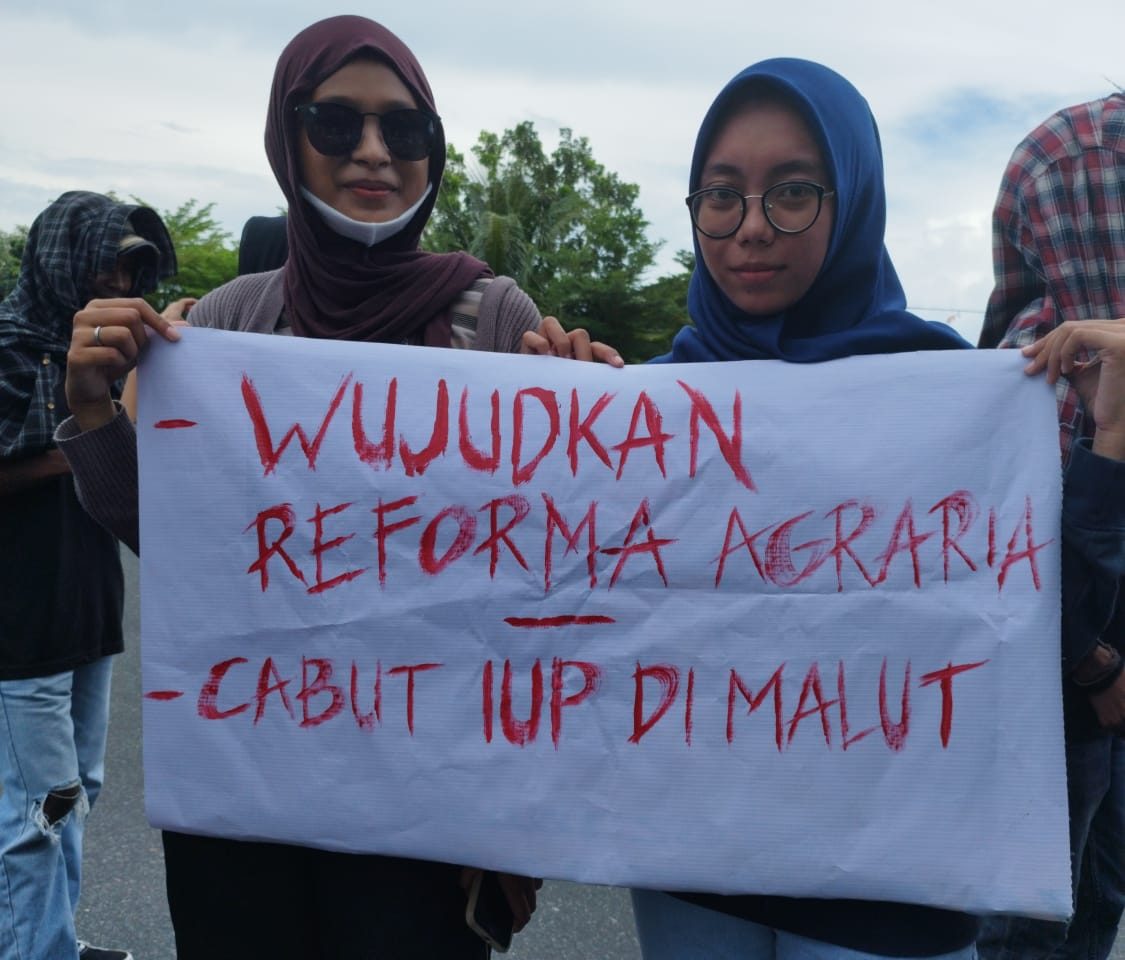 - WUJUDKAN
REFORMA AGRARIA
- CABUT IUP DI MALUT